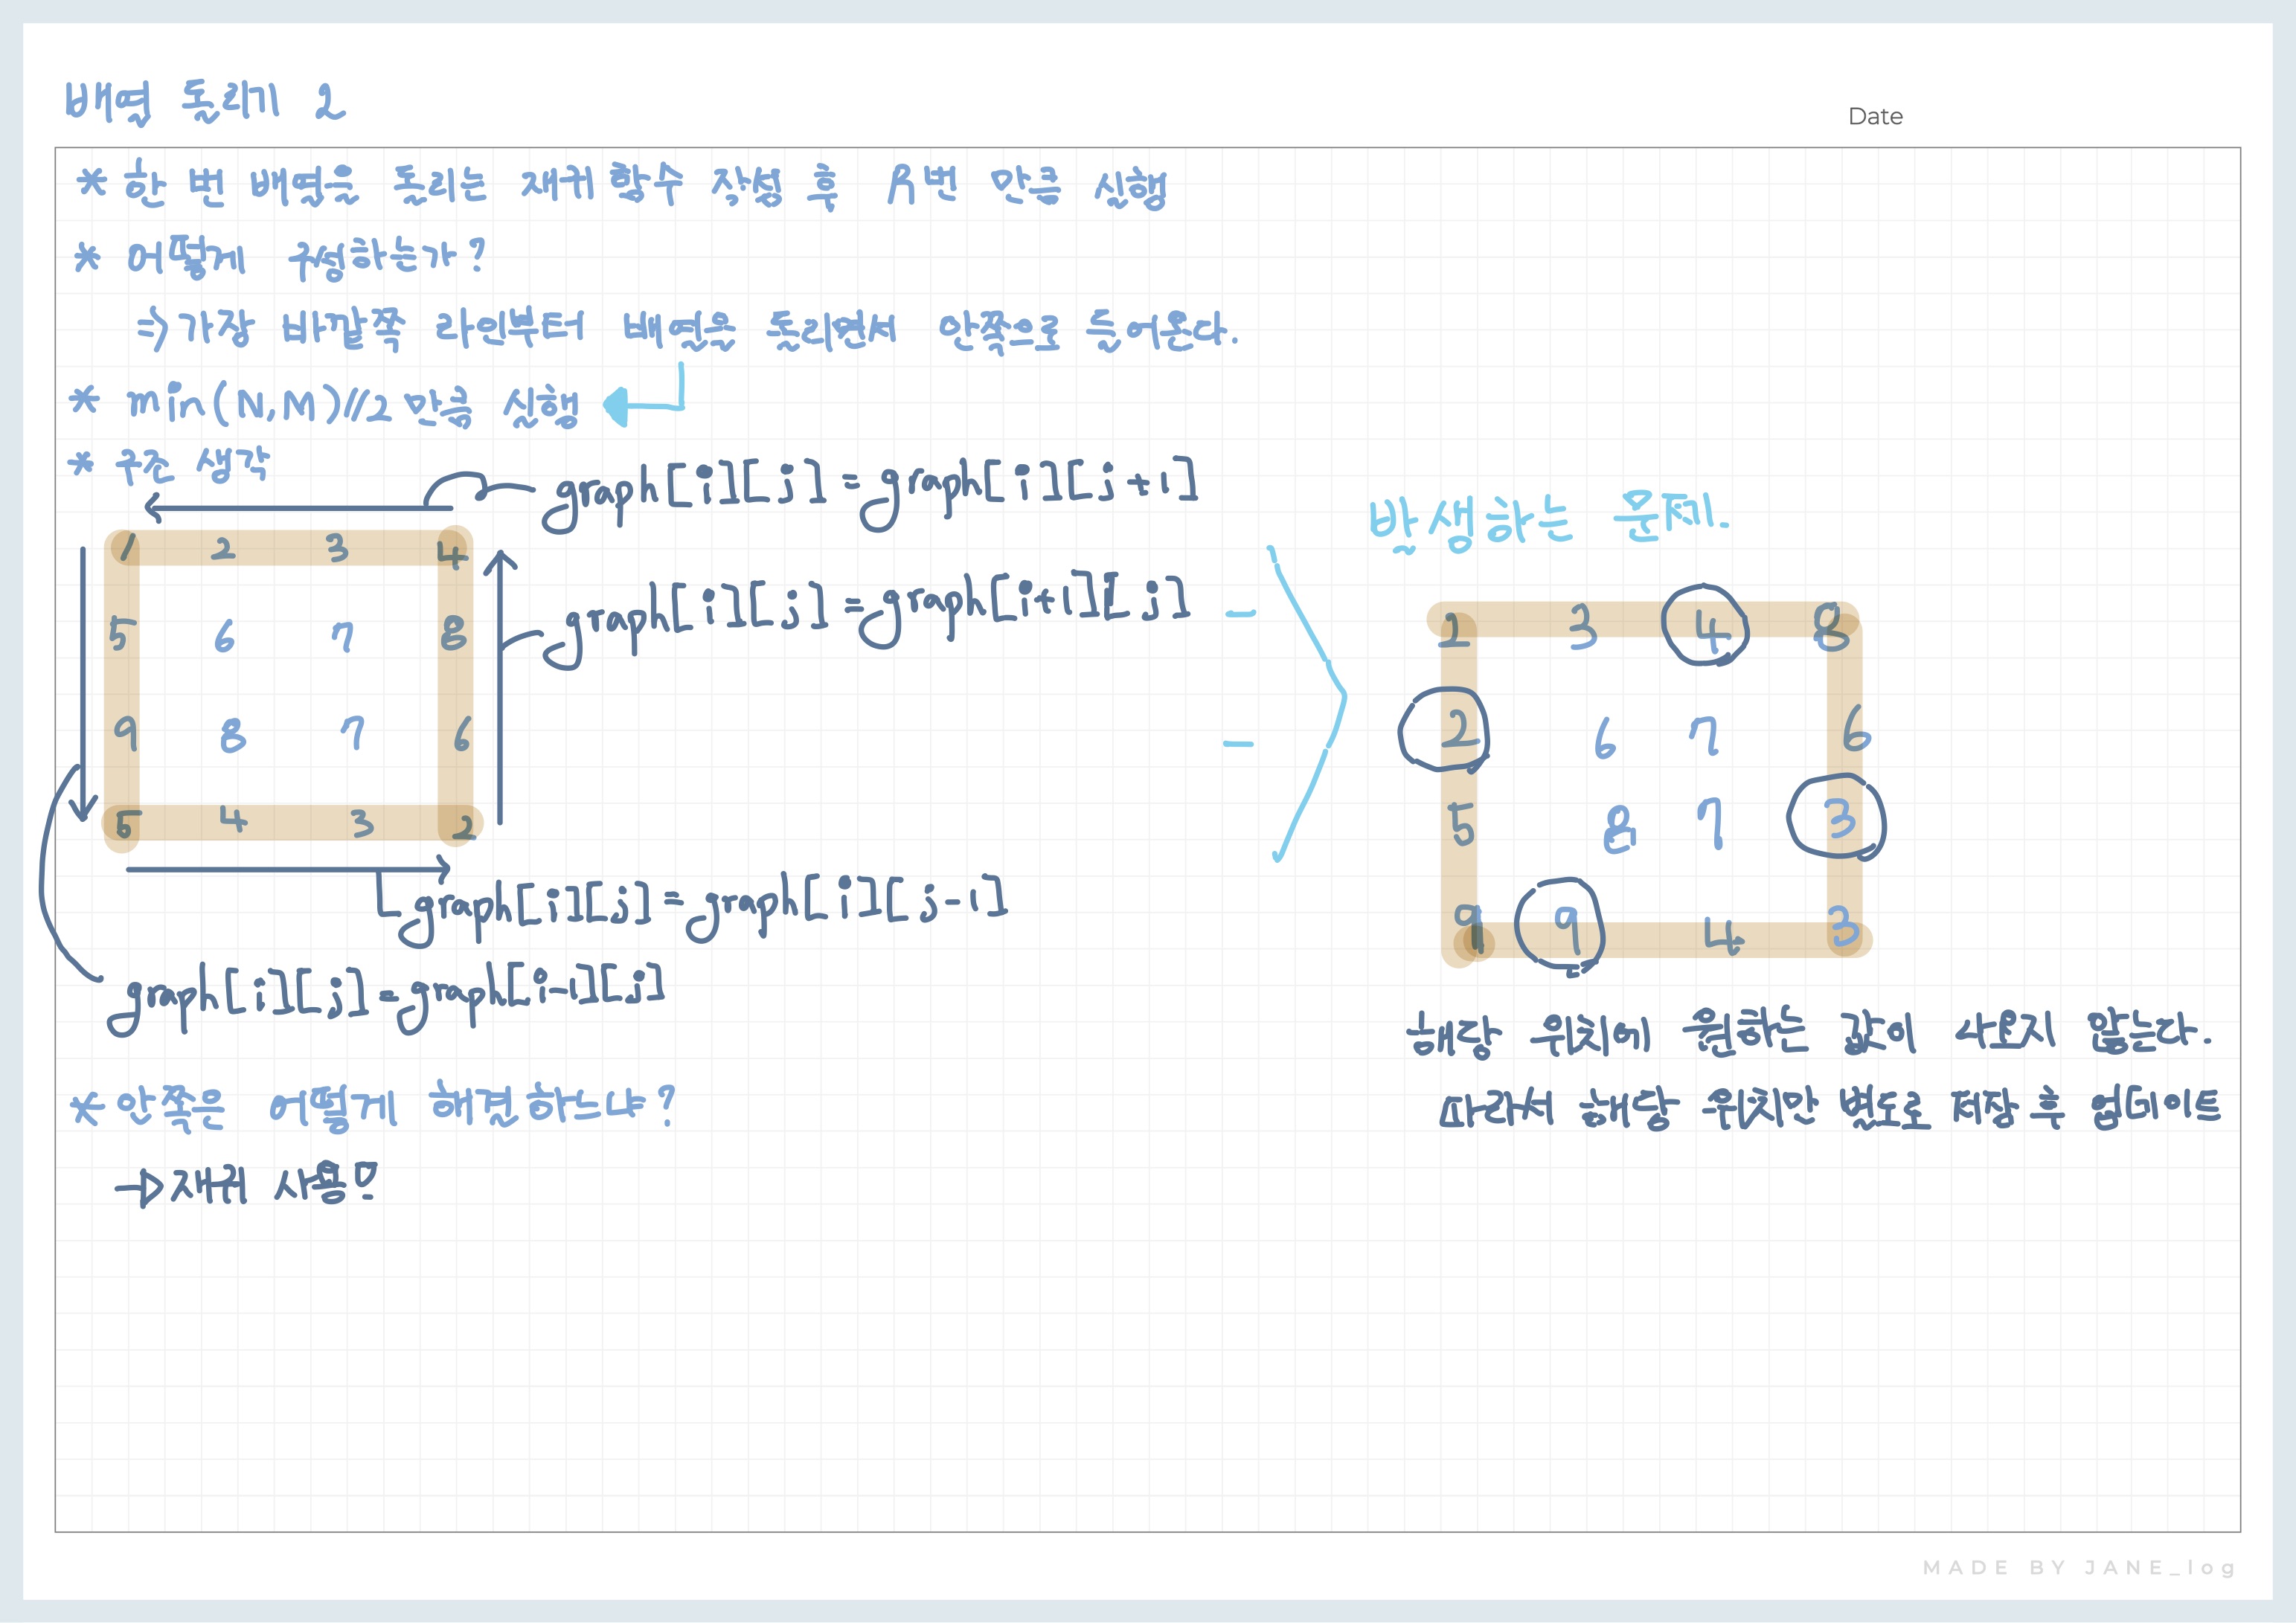 배열 돌리기 2
Date
* 한 번 배열을 돌리는 재귀 함수 작성 후 R번 만큼 실행
* 어떻게 구성하는가?
⇒ 가장 바깥쪽 라인부터 배열을 돌리면서 안쪽으로 들어온다.
* min(N,M)//2 만큼 실행
* 구조 생각
graph[i][j] = graph[i][j+1]
graph[i][j] = graph[i+1][j]
1 2 3 4
5 6 7 8
9 8 7 6
5 4 3 2
graph[i][j] = graph[i][j-1]
graph[i][j] = graph[i-1][j]
* 안쪽은 어떻게 해결하느냐?
→ 재귀 사용
발생하는 문제.
2 3 4 8
2 6 7 6
5 8 7 3
9 9 4 3
해당 위치에 원하는 값이 나오지 않는다.
따라서 해당 위치만 별도로 저장 후 업데이트
MADE BY JANE_log